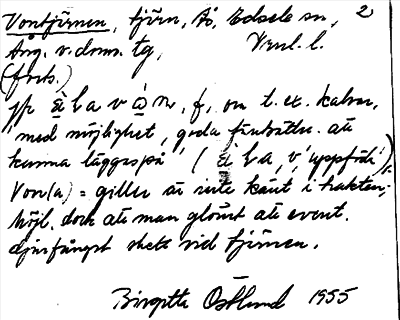 Vontjärnen, tjärn, tö, Edsele sn, 2
Ång. v. doms. tg, Vrml. l.
(forts.)
jfr èl b a v ò n, f, om t. ex. kalvar,
'med möjlighet, goda förutsättn. att
kunna läggas på' ( èl b a, v 'uppföda').
Von(a) = giller är inte känt i trakten;
Möjl. dock att man glömt att event.
djurfångst skett vid tjärnen.
Birgitta Östlund 1955